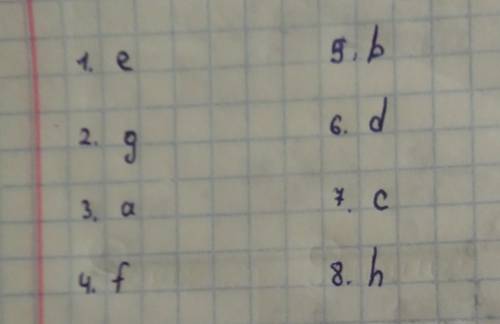 1. e
2. g
3. a
4. f
5. b
6. d
7. c
8. h